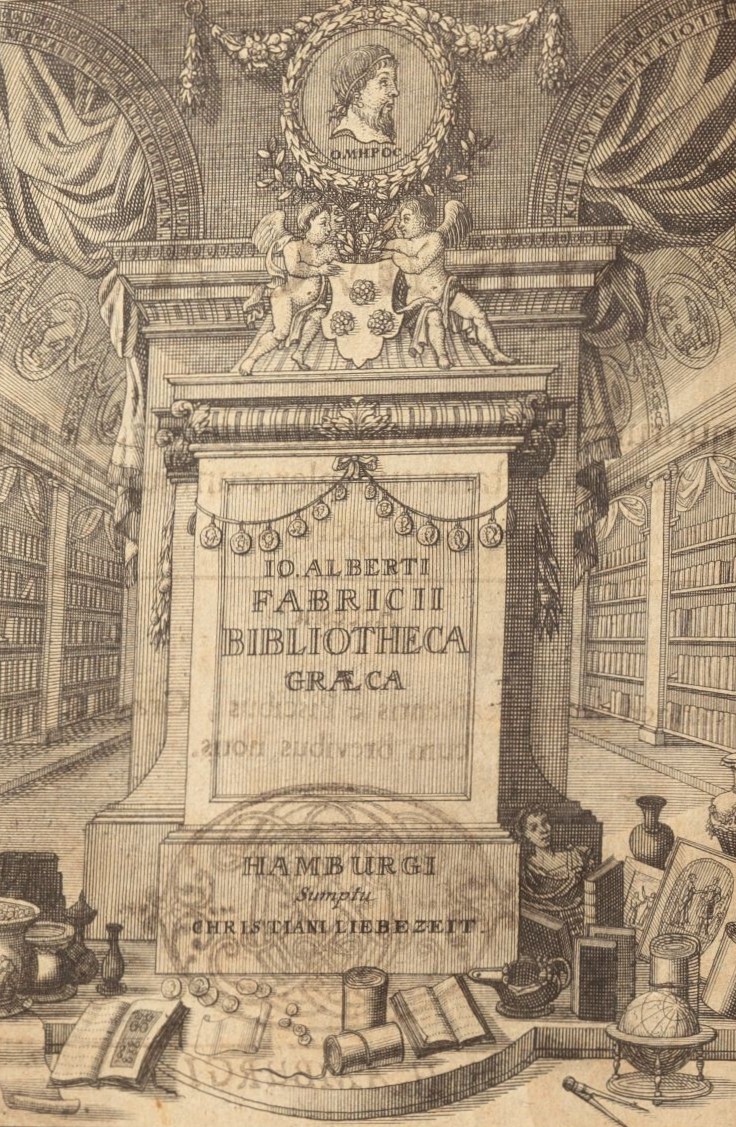 ΟΜΗΡΟC
ΚΑΙ ΤΟΥΤΟ ΜΑΤΑΙΟΤΗ
IO. ALBERTI
FABRICII
BIBLIOTHECA
GRÆCA
HAMBURGI
Sumptu
CHRISTIANI LIEBEZEIT.